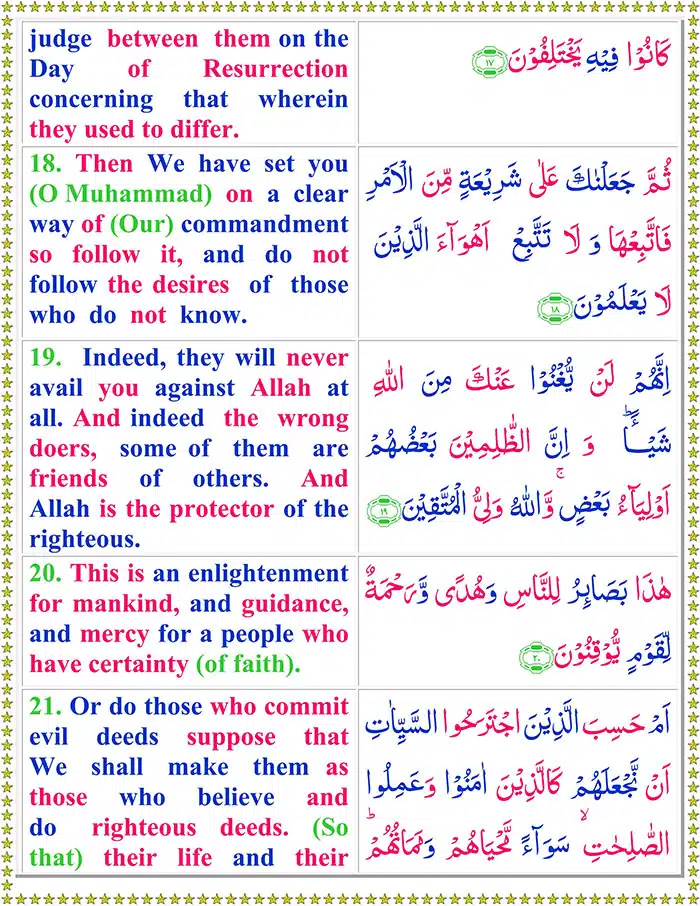 judge between them on the
Day of Resurrection
concerning that wherein
they used to differ.
كَانُوْا فِيْهِ يَخْتَلِفُوْنَ ١٧
18. Then We have set you
(O Muhammad) on a clear
way of (Our) commandment
so follow it, and do not
follow the desires of those
who do not know.
ثُمَّ جَعَلْنٰكَ عَلٰى شَرِيْعَةٍ مِّنَ الْاَمْرِ
فَاتَّبِعْهَا وَ لَا تَتَّبِعْ اَهْوَآءَ الَّذِيْنَ
لَا يَعْلَمُوْنَ ١٨
19. Indeed, they will never
avail you against Allah at
all. And indeed the wrong
doers, some of them are
friends of others. And
Allah is the protector of the
righteous.
اِنَّهُمْ لَنْ يُّغْنُوْا عَنْكَ مِنَ اللّٰهِ
شَيْـًٔا ؕ وَ اِنَّ الظّٰلِمِيْنَ بَعْضُهُمْ
اَوْلِيَآءُ بَعْضٍ ۚ وَاللّٰهُ وَلِىُّ الْمُتَّقِيْنَ ١٩
20. This is an enlightenment
for mankind, and guidance,
and mercy for a people who
have certainty (of faith).
هٰذَا بَصَآئِرُ لِلنَّاسِ وَهُدًى وَّرَحْمَةٌ
لِّقَوْمٍ يُّوْقِنُوْنَ ٢٠
21. Or do those who commit
evil deeds suppose that
We shall make them as
those who believe and
do righteous deeds. (So
that) their life and their
اَمْ حَسِبَ الَّذِيْنَ اجْتَرَحُوا السَّيِّاٰتِ
اَنْ نَّجْعَلَهُمْ كَالَّذِيْنَ اٰمَنُوْا وَعَمِلُوا
الصّٰلِحٰتِ ۙ سَوَآءً مَّحْيَاهُمْ وَمَمَاتُهُمْ ؕ